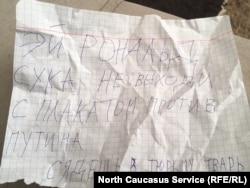 ЭЙ РОНАЛЬД
СУКА НЕ ВЫХОДИ
С ПЛАКАТОМ ПРОТИВ
ПУТИНА
СЯДЕШЬ В ТЮРЬМУ ТВАРЬ
North Caucasus Service (RFE/RL)